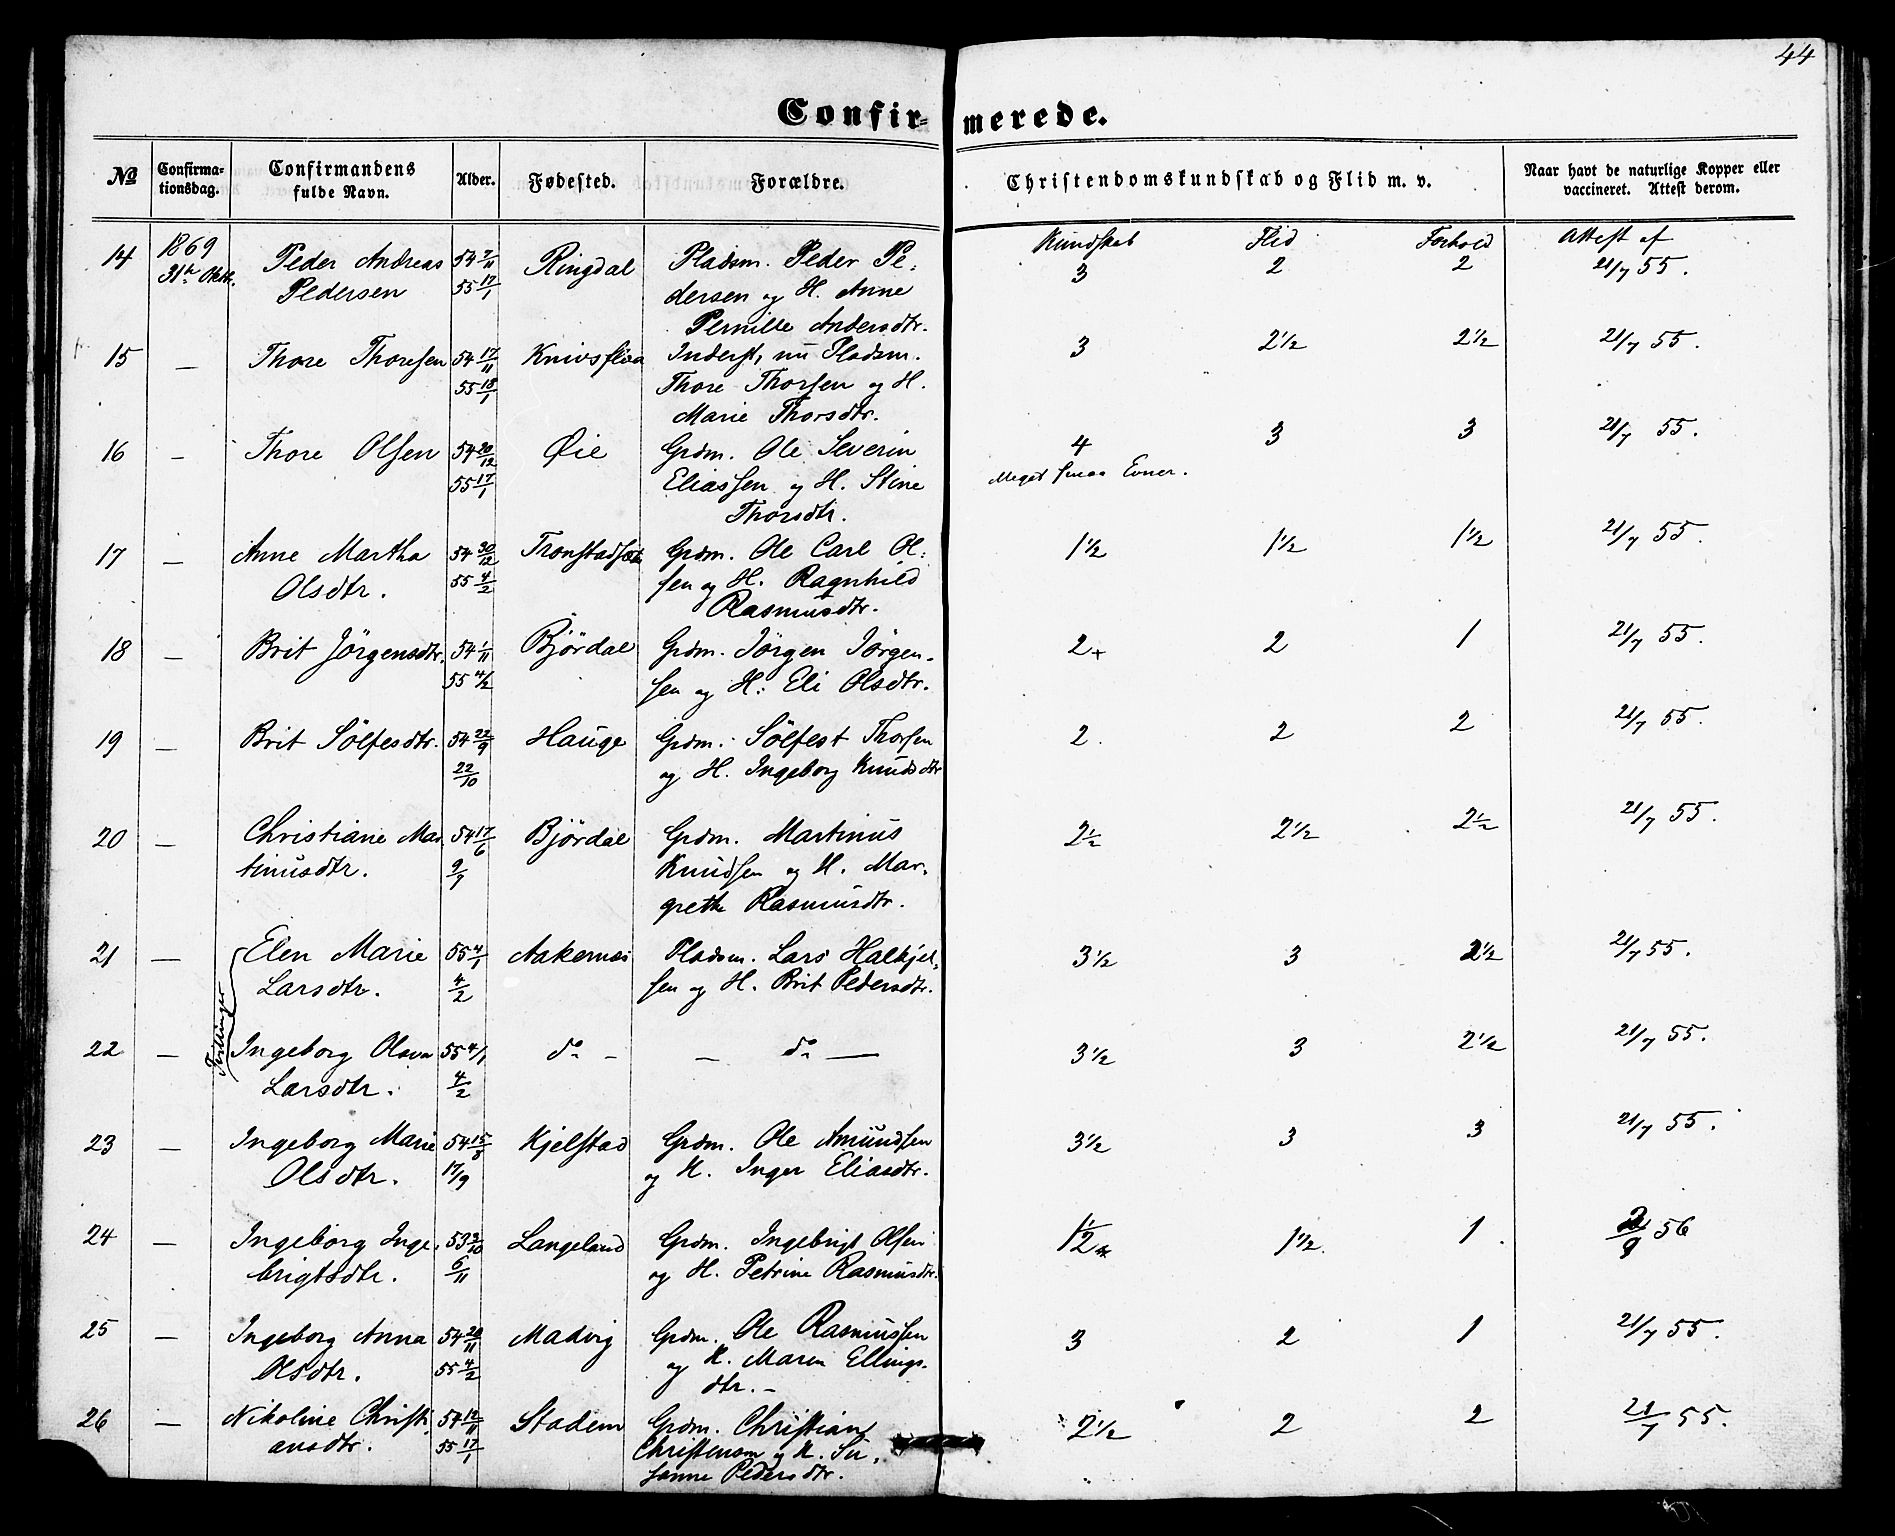 44
Confirmerede.
№ Confirmationsdag. Confirmandens fulde Navn. Alder. Fødested. Forældre. Christendomskundskab og Flid m. v. Naar havt de naturlige Kopper eller vaccineret. Attest derom.
Kundskab Flid Forhold Attest af
14 1869 31te Oktbr. Peder Andreas 54 7/11 Ringdal Pladsm. Peder Pe- 3 2 2 21/7 55.
Pedersen 55 17/1 dersen og H. Anne
Pernille Andersdtr.
15 — Thore Thoresen 54 17/11 Knivsflaa Inderst, nu Pladsm. 3 2 1/2 2 1/2 21/7 55.
55 18/1 Thore Thorsen og H.
Marie Thorsdtr.
16 — Thore Olsen 54 20/12 Øie Grdm. Ole Severin 4 3 3 21/7 55.
55 17/1 Eliassen og H. Stine Meget smaa Evner.
Thorsdtr.
17 — Anne Martha 54 30/12 Tronstadsæt Grdm. Ole Carl Ol- 1 1/2 1 1/2 1 1/2 21/7 55.
Olsdtr. 55 4/2 sen og H. Ragnhild
Rasmusdtr.
18 — Brit Jörgensdtr. 54 1/11 Björdal Grdm. Jörgen Jörgen- 2+ 2 1 21/7 55.
55 4/2 sen og H: Eli Olsdtr.
19 — Brit Sölfesdtr. 54 22/9 Hauge Grdm. Sölfest Thorsen 2. 2 2 21/7 55.
22/10 og H. Ingeborg Knudsdtr
20 — Christiane Mar 54 17/6 Björdal Grdm. Martinus 2 1/2 2 1/2 2 1/2 21/7 55.
tinusdtr. 9/9 Knudsen og H. Mar-
grethe Rasmusdtr.
Tvillinger
21 — Elen Marie 55 4/1 Aakernæs Pladsm. Lars Halkjel- 3 1/2 3 2 1/2 21/7 55.
Larsdtr. 4/2 sen og H. Brit Pedersdtr.
22 — Ingeborg Olava 55 4/1 do — — do — 3 1/2 3 2 1/2 21/7 55.
Larsdtr. 4/2
23 — Ingeborg Marie 54 15/8 Kjelstad Grdm. Ole Amundsen 3 1/2 3 3 21/7 55.
Olsdtr. 17/9 og H. Inger Eliasdtr.
24 — Ingeborg Inge- 53 2/10 Langeland Grdm. Ingebrigt Olsen 1 1/2 1 1/2. 1. 56
brigtsdtr. 6/11 og H. Petrine Rasmusdtr.
25 — Ingeborg Anna 54 20/11 Madvig Grdm. Ole Rasmussen 3 2 1 21/7 55.
Olsdtr. 55 4/2 og H. Maren Ellings-
dtr. —
26 — Nikoline Christi- 54 12/11 Stadem Grdm. Christian 2 1/2 2 2 21/7 55.
ansdtr. 55 17/1 Christensen og H. Su-
sanne Pedersdtr.